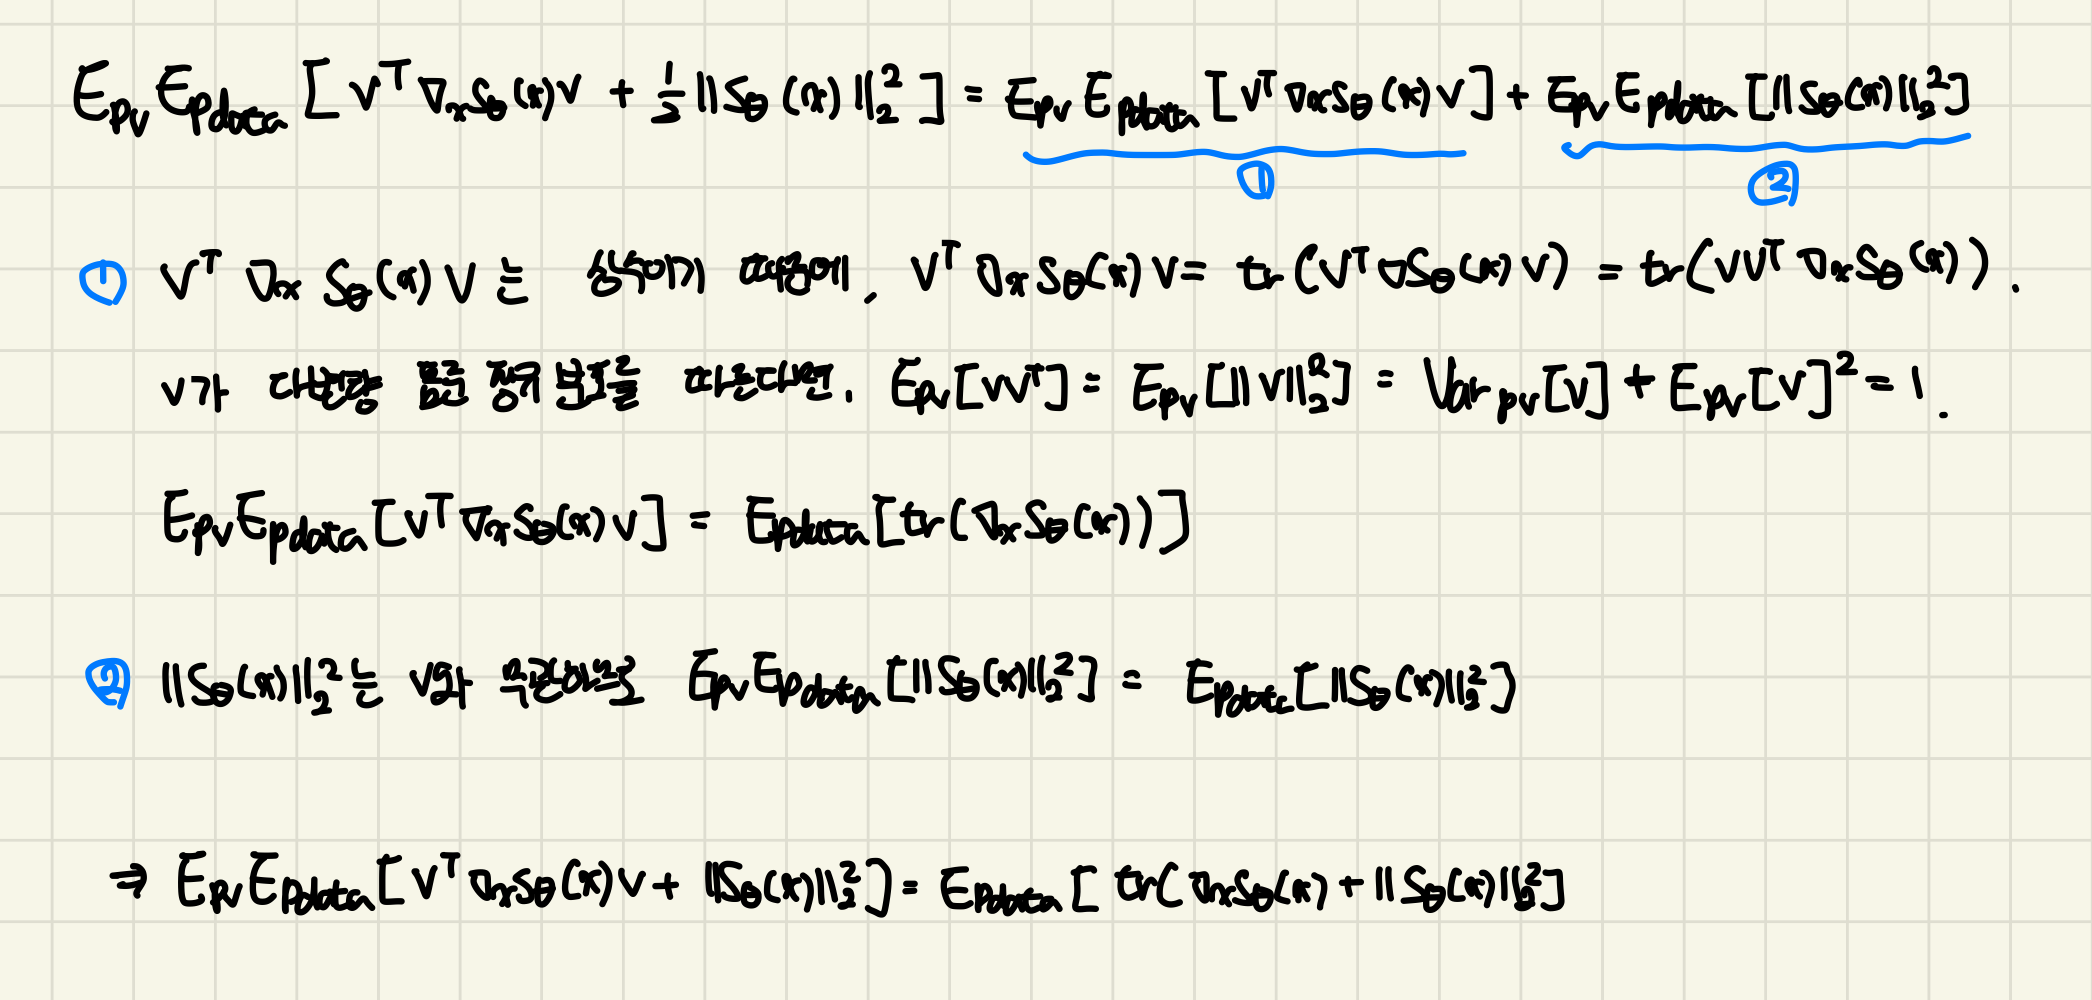 E_{pv} E_{pdata} [ v^T ∇_x s_θ(x) v + 1/2 ||s_θ(x)||_2^2 ] = E_{pv} E_{pdata} [v^T ∇_x s_θ(x) v] + E_{pv} E_{pdata} [||s_θ(x)||_2^2]
① ②
① v^T ∇_x s_θ(x) v 는 상수이기 때문에, v^T ∇_x s_θ(x) v = tr(v^T ∇s_θ(x) v) = tr(vv^T ∇_x s_θ(x)).
v가 다변량 표준 정규 분포를 따른다면, E_{pv}[vv^T] = E_{pv}[||v||_2^2] = Var_{pv}[v] + E_{pv}[v]^2 = 1.
E_{pv} E_{pdata} [v^T ∇_x s_θ(x) v] = E_{pdata} [tr(∇_x s_θ(x))]
② ||s_θ(x)||_2^2 는 v와 무관하므로 E_{pv} E_{pdata} [||s_θ(x)||_2^2] = E_{pdata} [||s_θ(x)||_2^2]
⇒ E_{pv} E_{pdata} [v^T ∇_x s_θ(x) v + ||s_θ(x)||_2^2] = E_{pdata} [ tr( ∇_x s_θ(x) + ||s_θ(x)||_2^2]